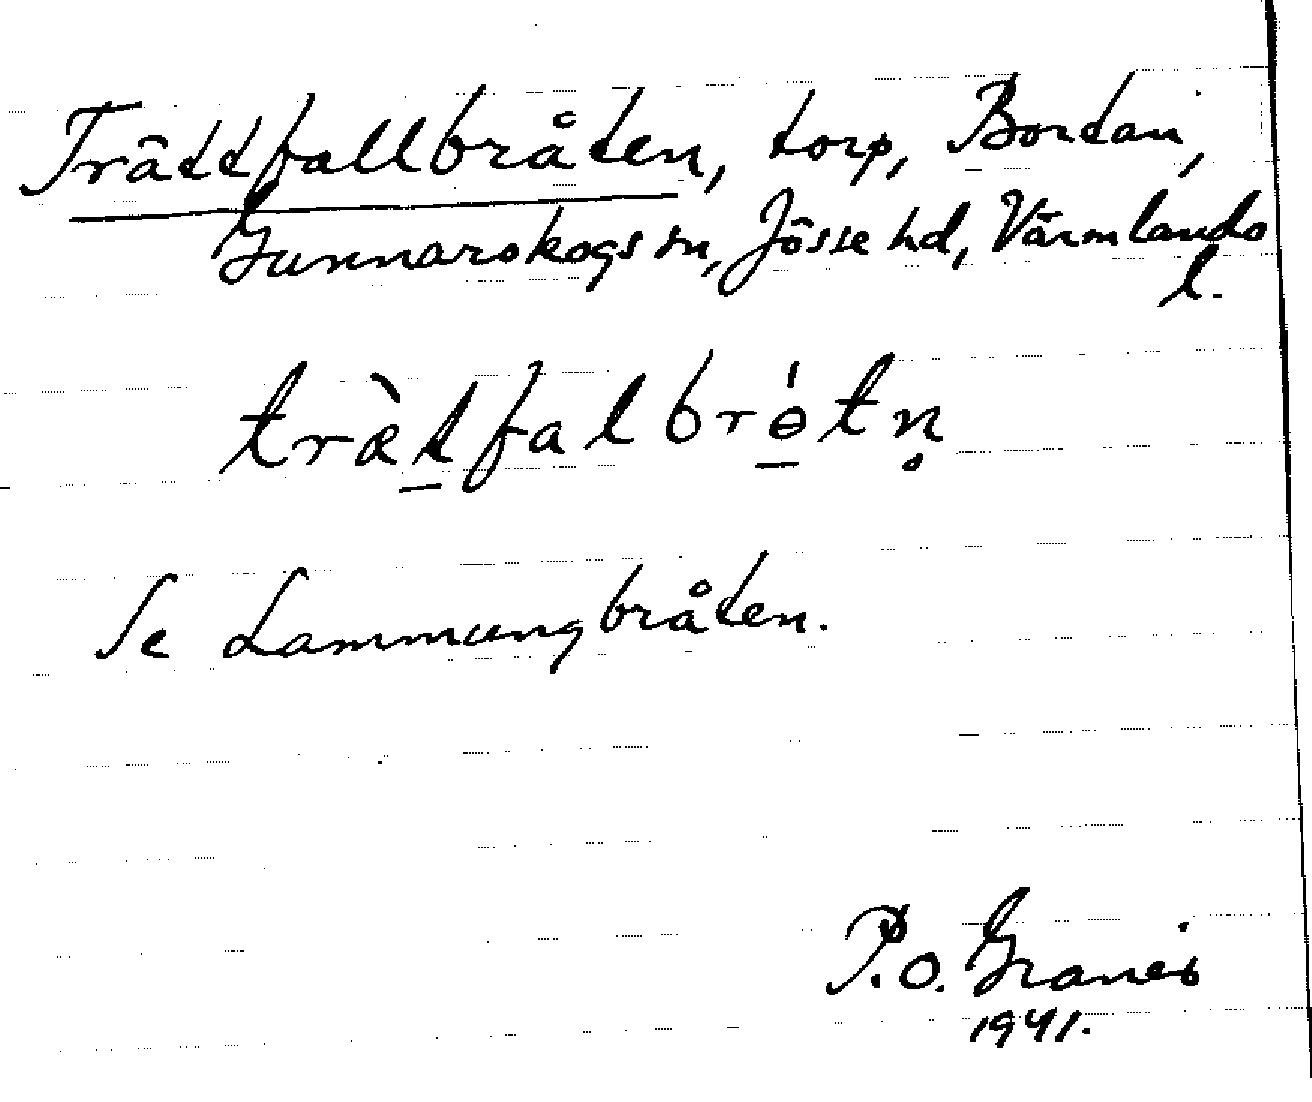 Trättfallbråten, torp, Bortan,
Gunnarskogs sn, Jösse hd, Värmlands
l.
træ̀t̠falbrɵ̠́tn̥
Se Lammungbråten.
P.O. Graneis
1941.